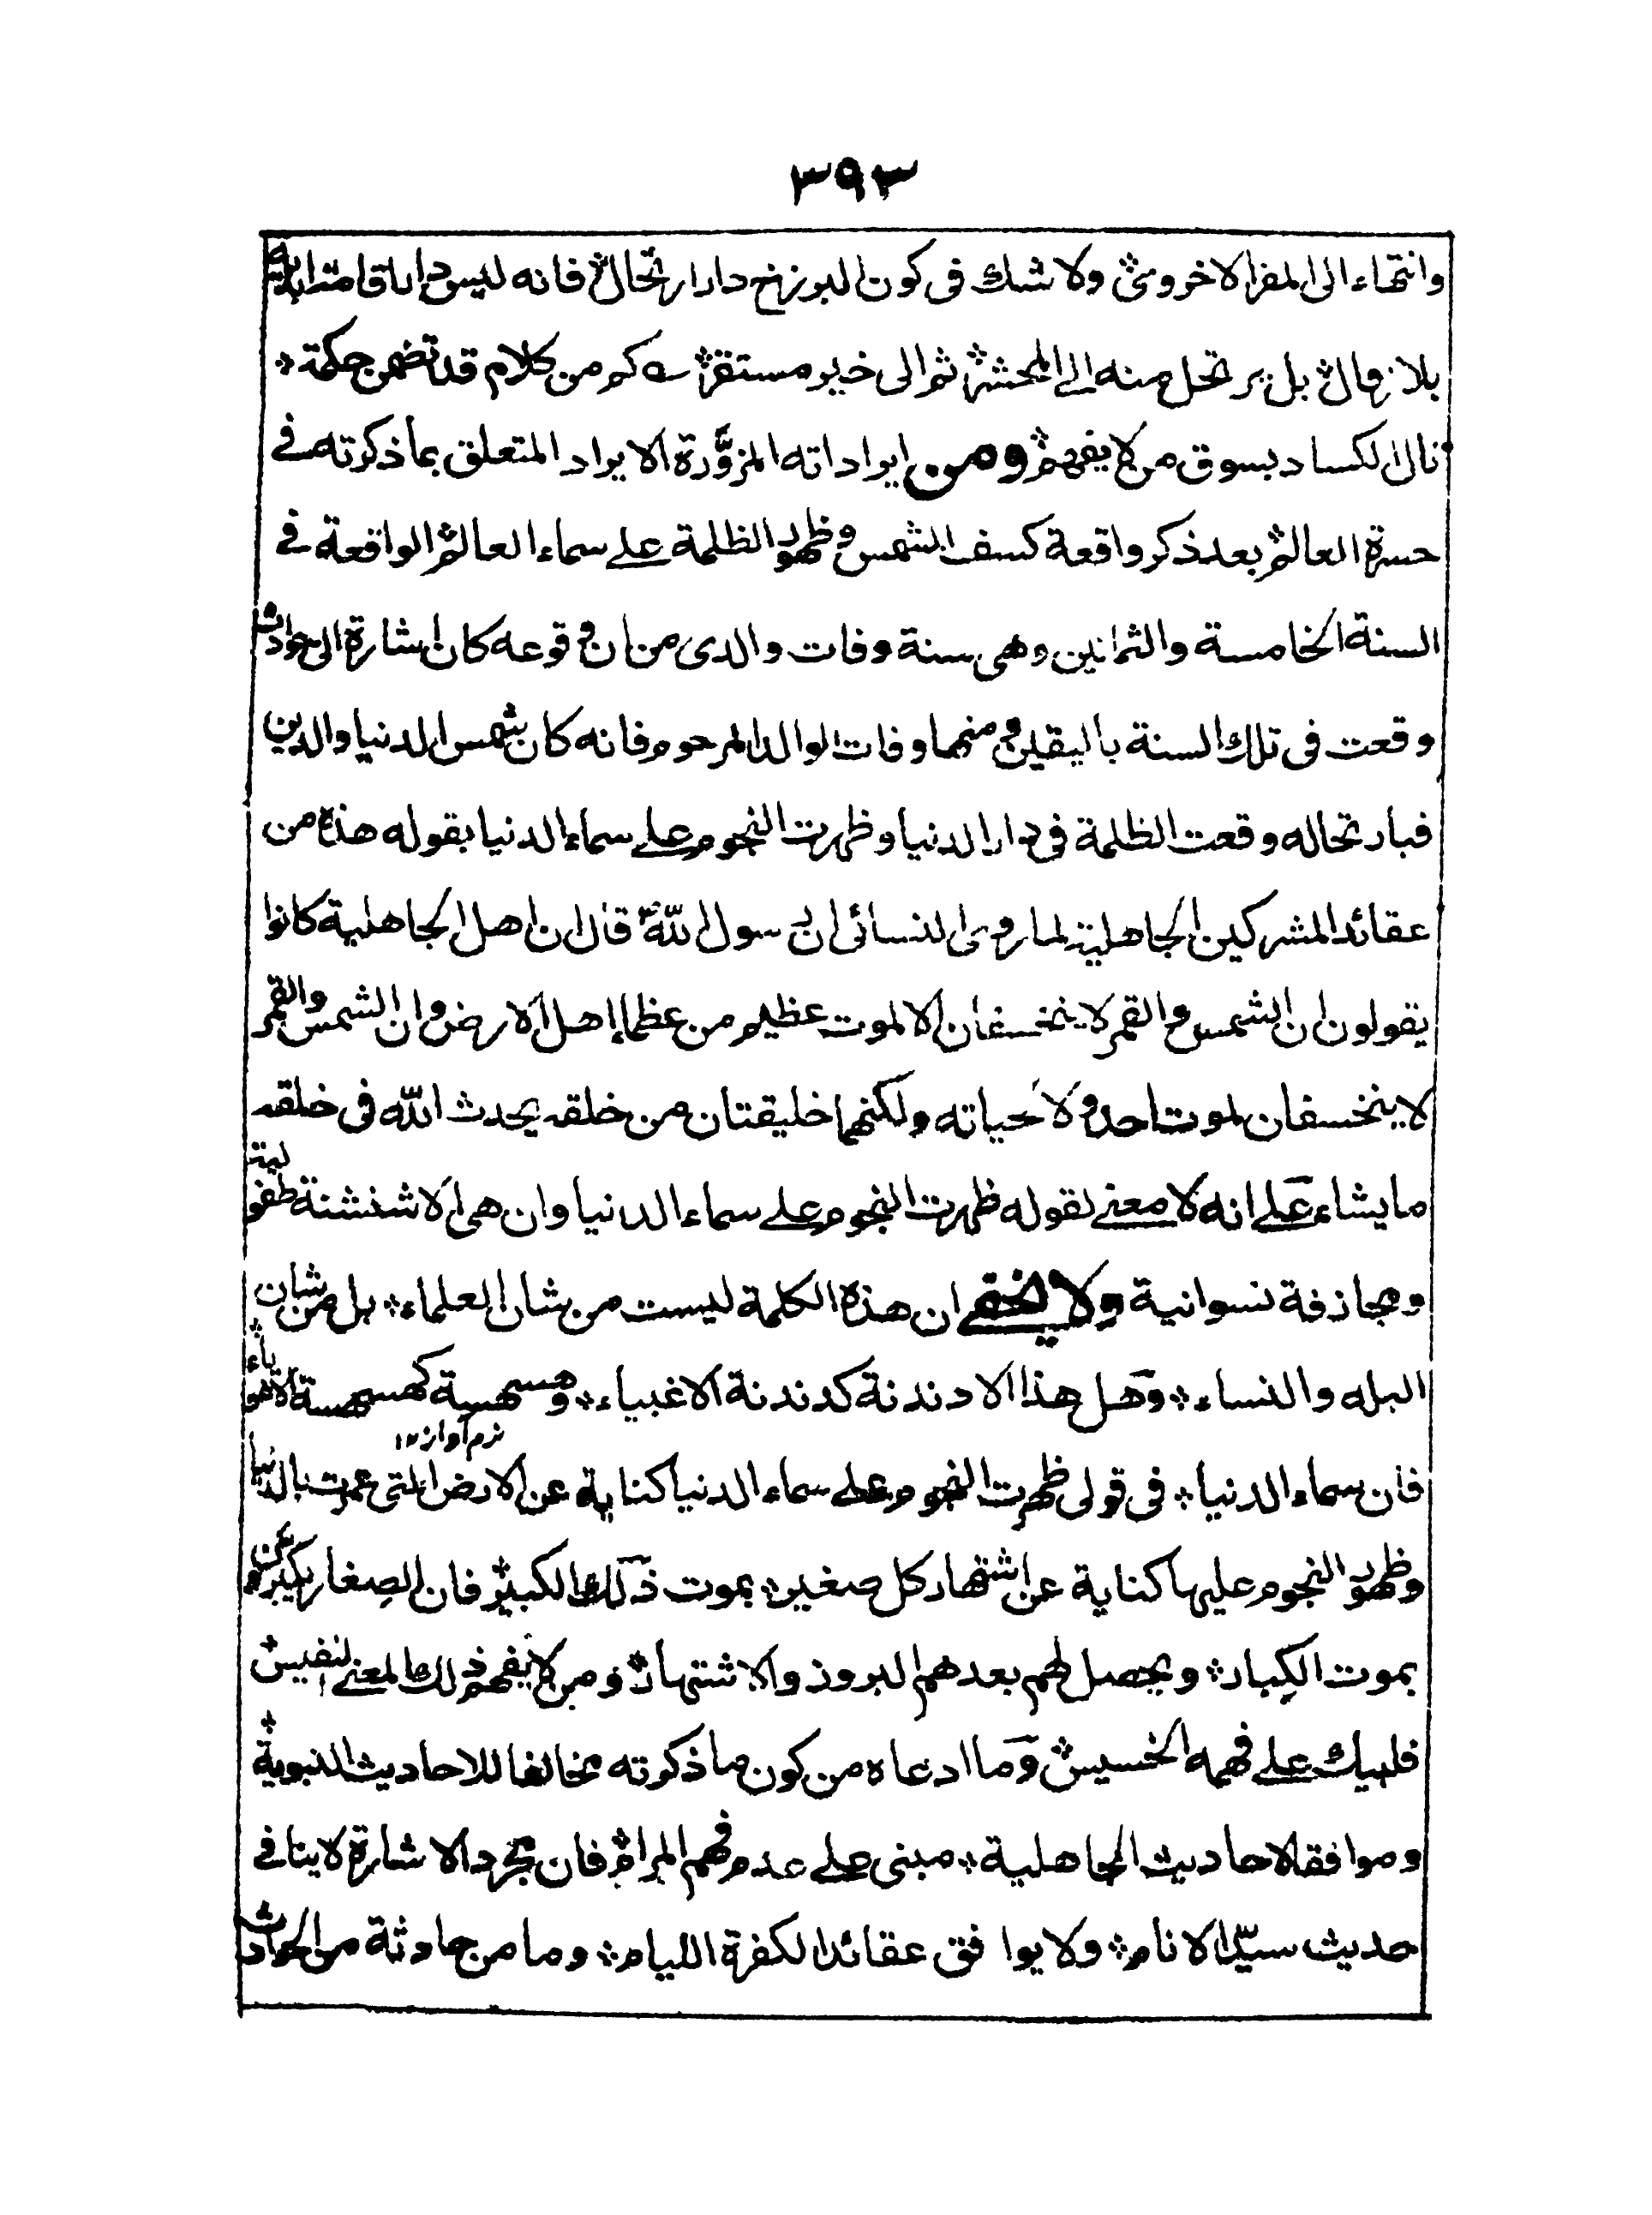 ٣٩٣
وانتهاء الى المفر الاخروى ولا شك فى كون البرزخ دار ارتحال فانه ليس دار اقامة ابدية
بلا زوال بل يرتحل منه الى المحشر ثم الى خير مستقر كم من كلام قد تضمن حكمة
نال الكساد بسوق من لا يفهم ومن ايراداته المزوَّرة الايراد المتعلق بما ذكرته فى
حسرة العالم بعد ذكر واقعة كسف الشمس وظهور الظلمة على سماء العالم الواقعة فى
السنة الخامسة والثمانين وهى سنة وفات والدى من ان وقوعه كان اشارة الى حوادث
وقعت فى تلك السنة باليقين ومنها وفات الوالد المرحوم فانه كان شمس الدنيا والدين
فبارتحاله وقعت الظلمة فى دار الدنيا وظهرت النجوم على سماء الدنيا بقوله هذه من
عقائد المشركين الجاهلية لما روى النسائى ان رسول الله قال ان اهل الجاهلية كانوا
يقولون ان الشمس والقمر لا ينخسفان الا لموت عظيم من عظماء اهل الارض وان الشمس والقمر
لا ينخسفان لموت احد ولا حياته ولكنهما خليقتان من خلقه يحدث الله فى خلقه
ما يشاء على انه لا معنى لقوله ظهرت النجوم على سماء الدنيا وان هى الا شنشنة طفولية
ومجازفة نسوانية ولا يخفى ان هذه الكلمة ليست من شان العلماء بل من شان
البله والنساء وهل هذا الا دندنة كدندنة الاغبياء وهسهسة كهسهسة الاقوياء
نرم آواز ١٢
فان سماء الدنيا فى قولى ظهرت النجوم على سماء الدنيا كناية عن الارض التى عمرت بالدنيا
وظهور النجوم عليها كناية عن اشتهار كل صغير بموت ذلك الكبير فان الصغار يكبرون
بموت الكبار ويحصل لهم بعدهم البروز والاشتهار ومن لا يفهم ذلك المعنى النفيس
فليبك على فهمه الخسيس وما ادعاه من كون ما ذكرته مخالفا للاحاديث النبوية
وموافقا لاحاديث الجاهلية مبنى على عدم فهم المرام فان مجرد الاشارة لا ينافى
حديث سيّد الانام ولا يوافق عقائد الكفرة الليام وما من حادثة من الحوادث